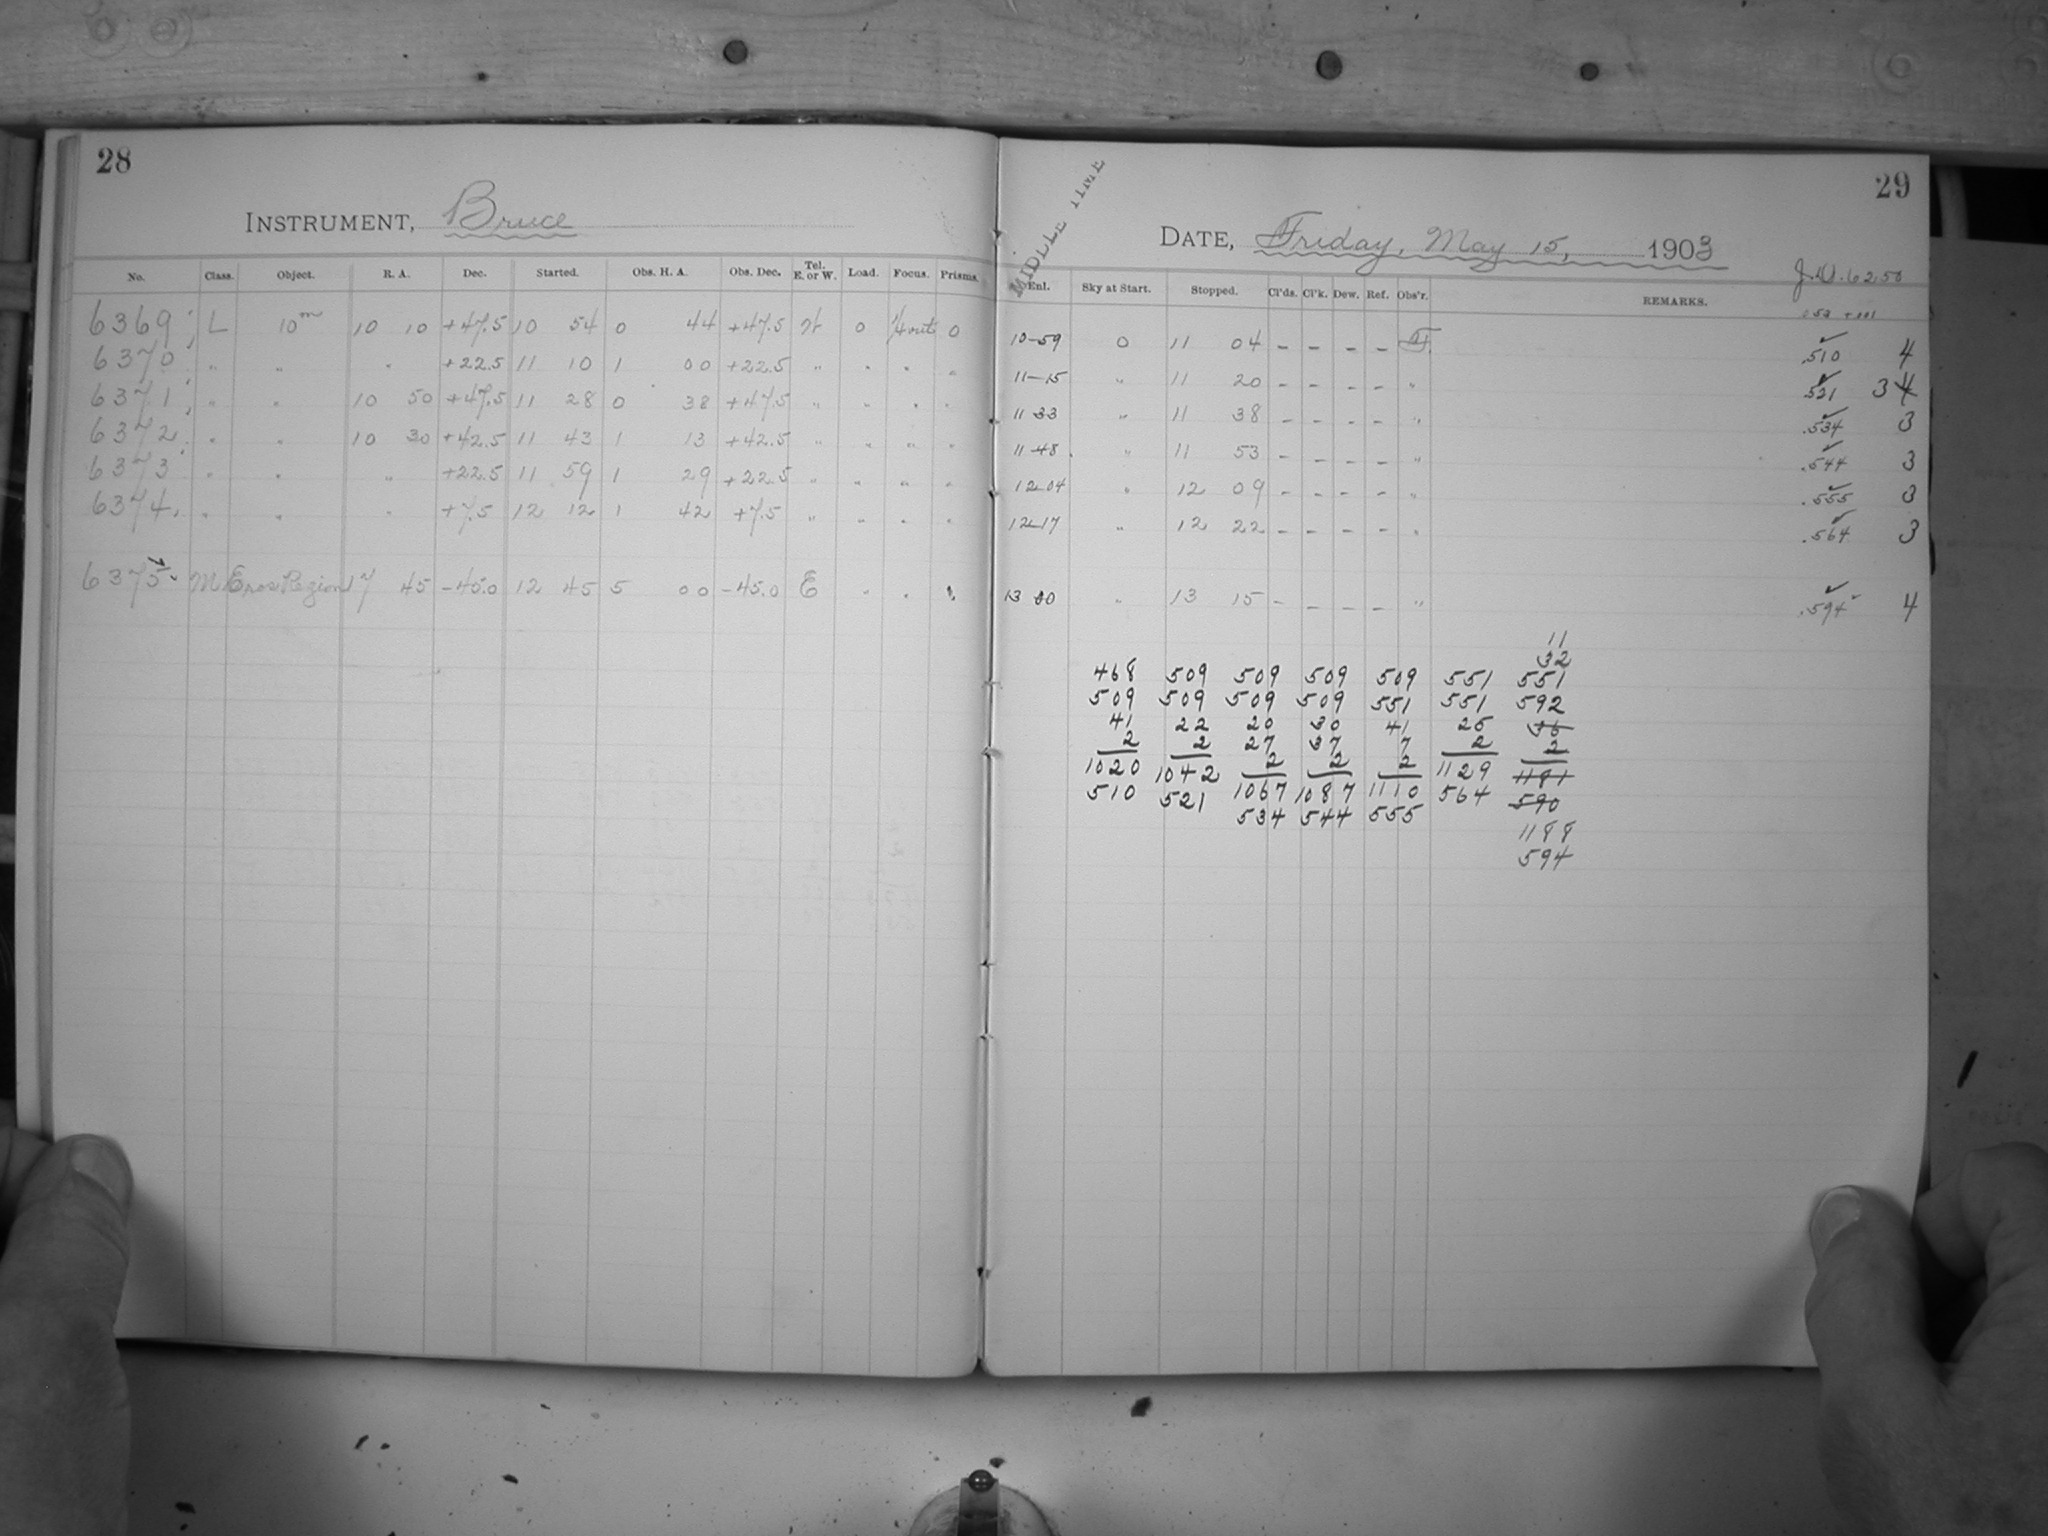 28
INSTRUMENT, Bruce
No. Class. Object. R. A. Dec. Started. Obs. H. A. Obs. Dec. Tel. E. or W. Load. Focus. Prisms.
6369 L 10m 10 10 +47.5 10 54 0 44 +47.5 W 0 1/4 out 0
6370 " " " +22.5 11 10 1 00 +22.5 " " " "
6371 " " 10 50 +47.5 11 28 0 38 +47.5 " " " "
6372 " " 10 30 +42.5 11 43 1 13 +42.5 " " " "
6373 " " " +22.5 11 59 1 29 +22.5 " " " "
6374 " " " +7.5 12 12 1 42 +7.5 " " " "
6375 M Eros Region 17 45 -45.0 12 45 5 00 -45.0 E " " "
29
MIDLLE TIME
DATE, Friday, May 15, 1903
J.D. 6250
Enl. Sky at Start. Stopped. Cl'ds. Cl'k. Dew. Ref. Obs'r. REMARKS.
+.001
10-59 0 11 04 - - - - .510 4
11-15 " 11 20 - - - - " .521 3 4
11 33 " 11 38 - - - - " .534 3
11 48 " 11 53 - - - - " .544 3
12 04 " 12 09 - - - - " .555 3
12-17 " 12 22 - - - - " .564 3
13 00 " 13 15 - - - - " .594 4
11
32
468 509 509 509 509 551 551
509 509 509 509 551 551 592
41 22 20 30 41 25 36
2 2 27 37 7 2 2
1020 1042 2 2 2 1129 1181
510 521 1067 1087 1110 564 590
534 544 555 1188
594